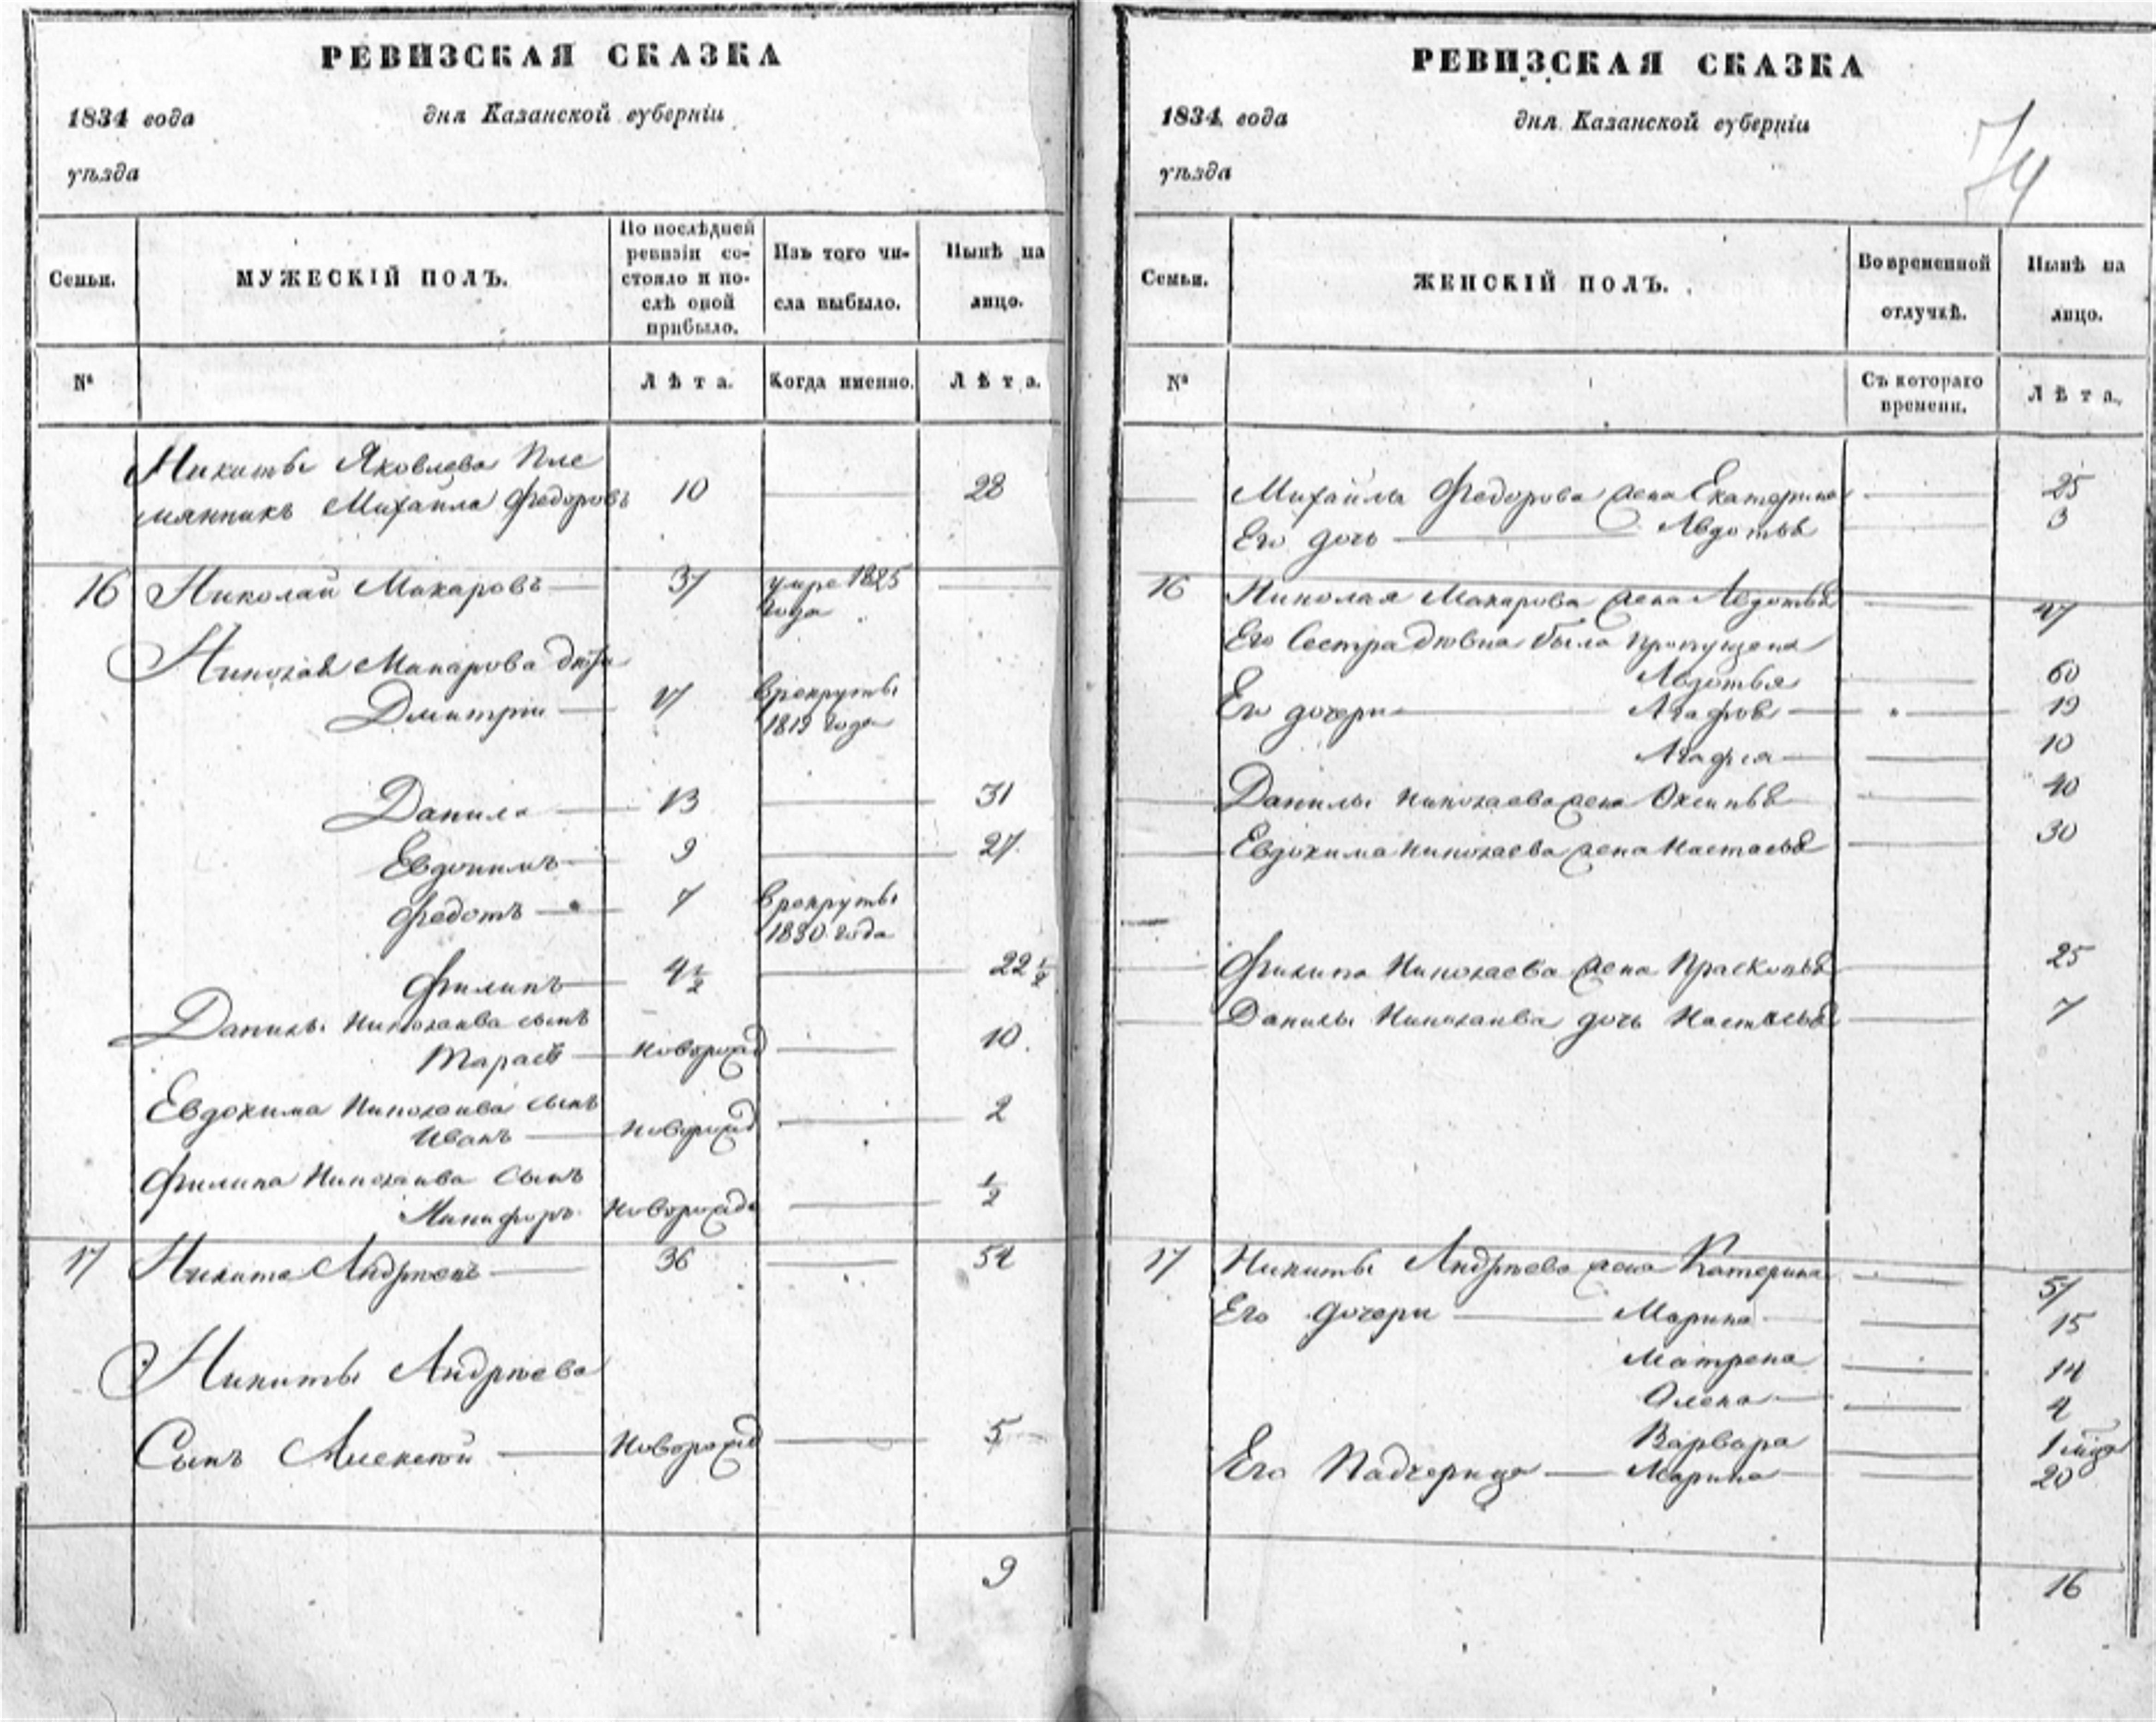 РЕВИЗСКАЯ СКАЗКА
1834 года дня Казанской губерніи
уѣзда
Семьи.
МУЖЕСКІЙ ПОЛЪ.
По послѣдней
ревизіи со-
стояло и по-
слѣ оной
прибыло.
Изъ того чи-
сла выбыло.
Нынѣ на
лицо.
№
Лѣта.
Когда именно.
Лѣта.
Никиты Яковлева Пле
мянникъ Михайла Федоровъ 10 28
16 Николай Макаровъ 37 умре 1825
года
Николая Макарова дѣти
Дмитрий 17 в рекруты
1819 года
Данила 13 31
Евдокимъ 9 27
Федотъ 7 в рекруты
1830 года
Филипъ 4½ 22½
Данилы Николаива сынъ
Тарасъ новорожд 10
Евдокима Николаива сынъ
Иванъ новорожд 2
Филипа Николаива Сынъ
Никифоръ новорожд ½
17 Никита Андреевъ 36 54
Никиты Андреева
Сынъ Алексей новорожд 5
9
РЕВИЗСКАЯ СКАЗКА
1834 года дня Казанской губерніи
уѣзда
74
Семьи.
ЖЕНСКІЙ ПОЛЪ.
Во временной
отлучкѣ.
Нынѣ на
лицо.
№
Съ котораго
времени.
Лѣта.
Михайлы Федорова жена Екатерина 25
Его дочь Авдотья 3
16 Николая Макарова жена Авдотья 47
Его Сестра девка была пропущена
Авдотья 60
Его дочери 19
Агафия 10
Данилы Николаева жена Оксинья 40
Евдокима Николаева жена Настасья 30
Филипа Николаева жена Прасковья 25
Данилы Николаива дочь Настасья 7
17 Никиты Андреева жена Катерина 57
Его дочери Марина 15
Матрена 14
Олена 4
Варвара 1
Его Падчерица Марина 20
16